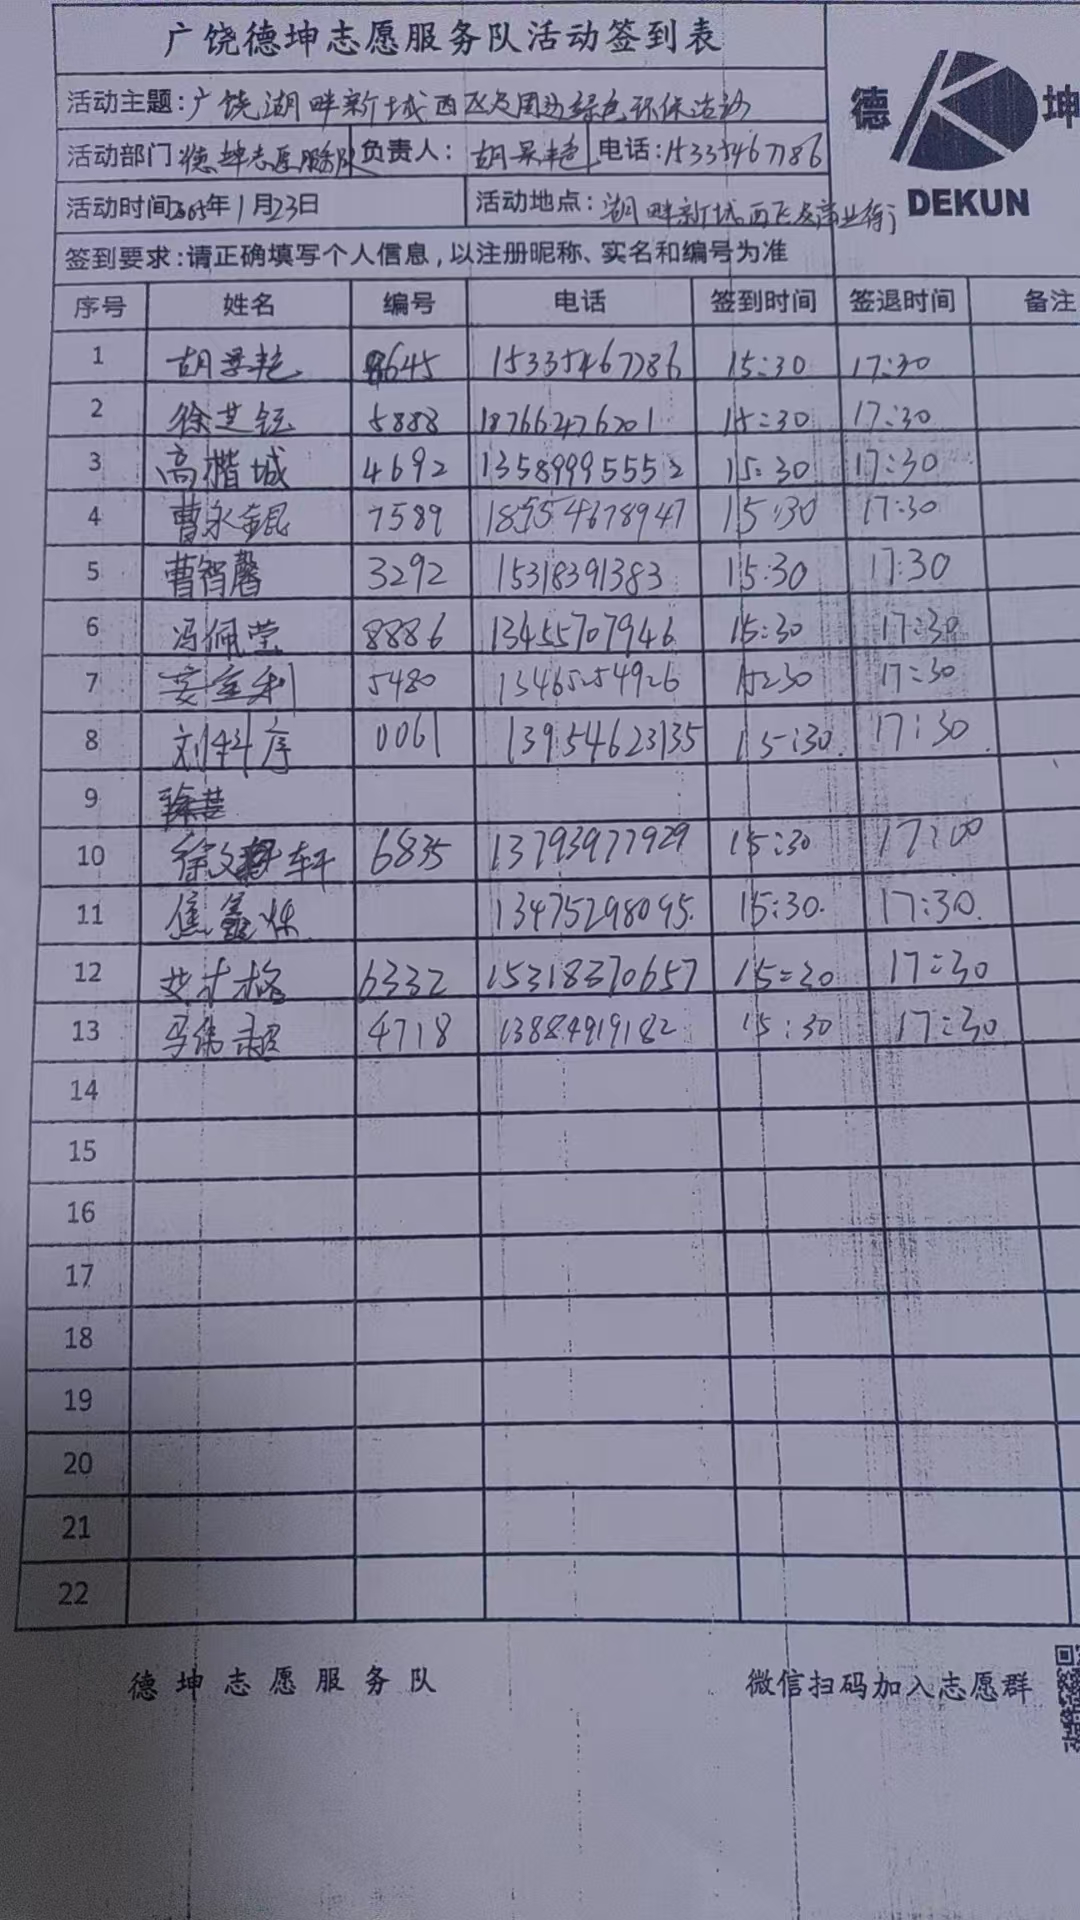 广饶德坤志愿服务队活动签到表
活动主题:广饶湖畔新城西区及周边绿色环保活动
德 坤
DEKUN
活动部门 德坤志愿服务队 负责人: 胡景艳 电话:15335467786
活动时间 年1月23日 活动地点: 湖畔新城西区及商业街
签到要求:请正确填写个人信息,以注册昵称、实名和编号为准
序号 姓名 编号 电话 签到时间 签退时间 备注
1 胡景艳 8645 15335467786 15:30 17:30
2 徐芝钰 5888 18766276201 15:30 17:30
3 高楷城 4692 13589995552 15:30 17:30
4 曹永锟 7589 18554678947 15:30 17:30
5 曹智馨 3292 15318391383 15:30 17:30
6 冯佩莹 8886 13455707946 15:30 17:30
7 利 5480 13465254926 15:30 17:30
8 刘 序 0061 13954623135 15:30 17:30
9
10 徐文轩 6835 13793977929 15:30 17:00
11 焦鑫 13475298095 15:30 17:30
12 格 6332 15318370657 15:30 17:30
13 马伟超 4718 13884919182 15:30 17:30
14
15
16
17
18
19
20
21
22
德坤志愿服务队 微信扫码加入志愿群